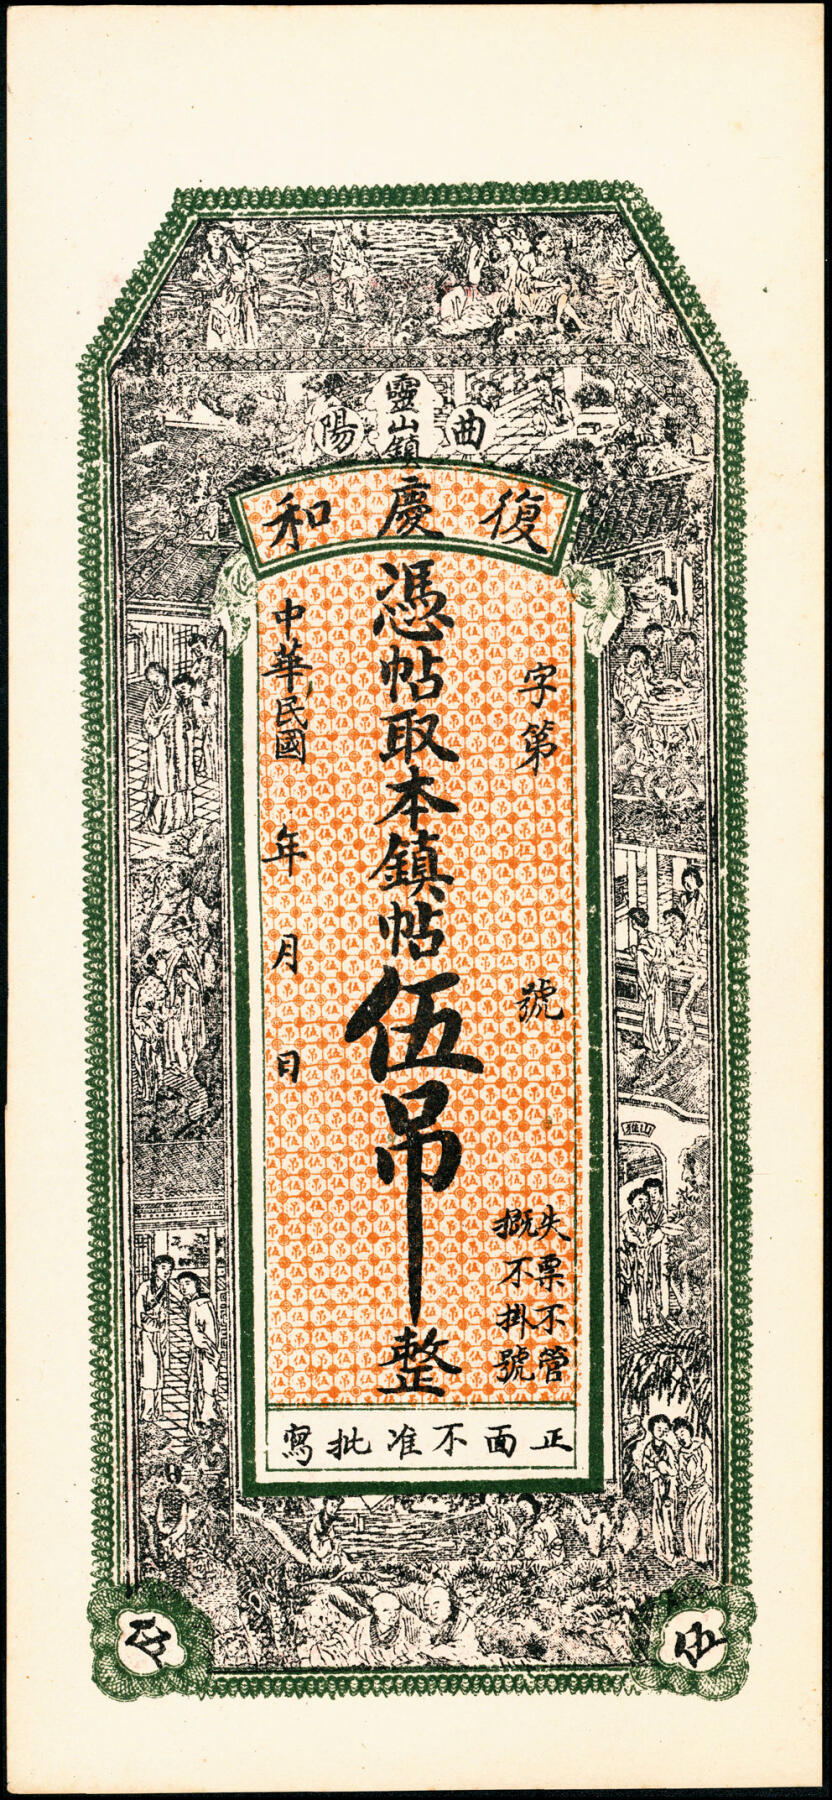 曲陽
靈山鎮
復慶和
字第號
失票不管
概不掛號
憑帖取本鎮帖伍吊整
中華民國年月日
正面不准批寫
山雅
伍
伍